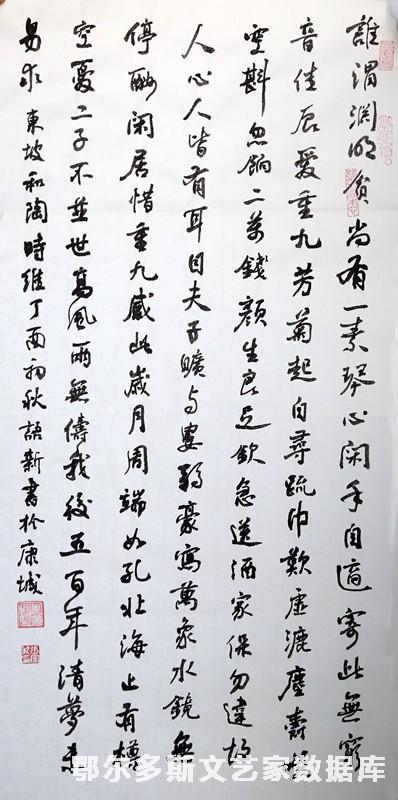 誰謂淵明貧尚有一素琴心閑手自適寄此無窮
音佳辰愛重九芳菊起自尋疏巾歎虛漉塵爵笑
空斟忽餉二萬錢顏生良足欽急送酒家保勿違故
人心人皆有耳目夫子曠与婁弱豪寫萬象水鏡無
停酬閑居惜重九感此歲月周端如孔北海止有樽
空憂二子不並世高風兩無儔我後五百年清夢未
易求 東坡和陶時維丁酉初秋語新書於康城
鄂尔多斯文艺家数据库